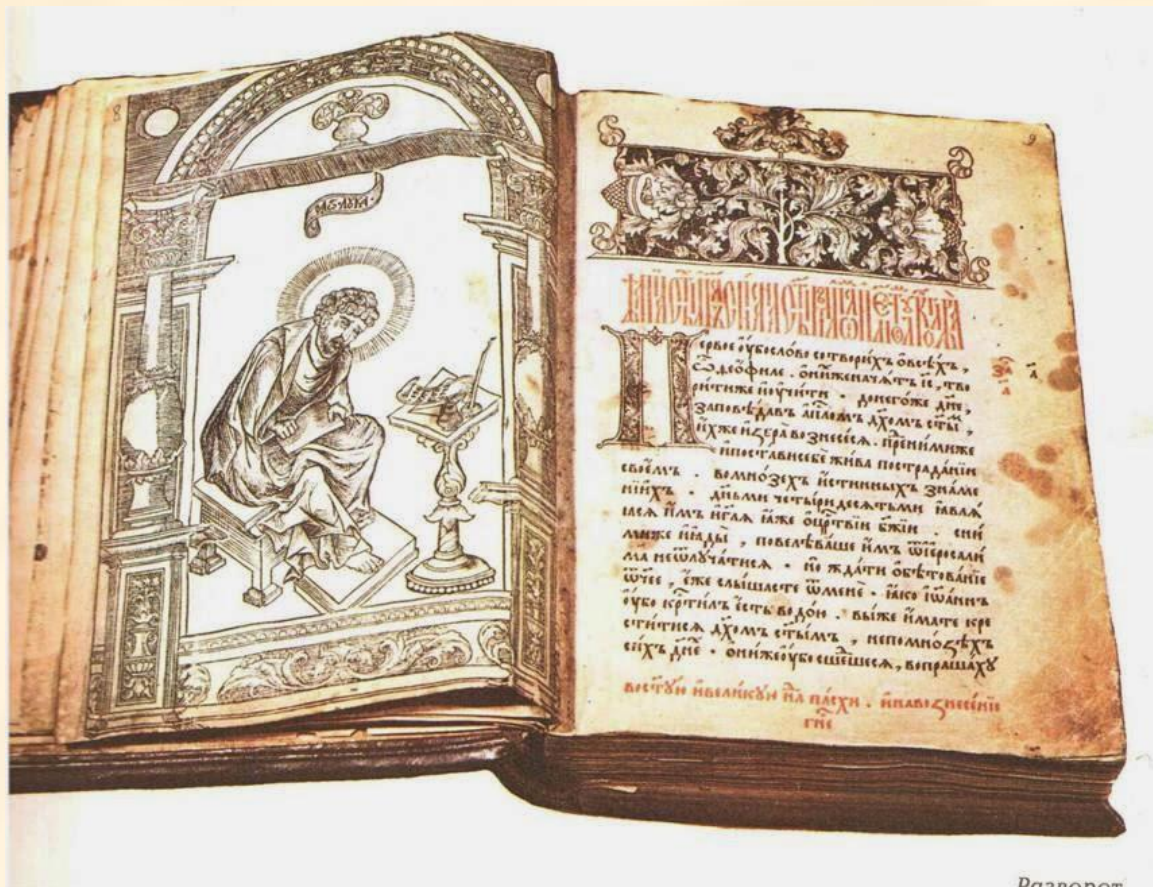 8
9
Первое ᲂу҆бо сло́во сотвори́хъ ѡ҆ всѣ́хъ ,
ѽ де́ѻфиле . ѻ҆ ни́хже нача́тъ і҆с҃ , тво
ри́тиже и҆ ᲂу҆чи́ти . до него́же дн҃е ,
запове́давъ а҆пⷭ҇ломъ дх҃омъ ст҃ы́ ,
и҆́хже и҆збра̀ вознесе́сѧ . пре́д ни́миже
и҆ поста́ви себѐ жи́ва по страда́нїи
свое́мъ . во мно́зехъ и҆́стинныхъ зна́ме
нїихъ . дн҃ьми четы́ридесѧтьми ꙗ҆влѧ́
ѧсѧ и҆̀мъ и҆ гл҃ѧ ꙗ҆́же ѡ҆ црⷭ҇твїи бж҃їи . с ни́
миже и҆ ꙗ҆ды̀ , повелѣва́ше и҆̀мъ ѿ і҆еросали
ма не ѿлꙋча́тисѧ . но жда́ти ѡ҆бѣтова́нїе
ѻ҆́ч҃ее , е҆́же слы́шасте ѿ менѐ . ꙗ҆́ко і҆ѡа́ннъ
ᲂу҆́бо крⷭ҇ти́лъ є҆́сть водо́ю . вы́же и҆́мате кре
сти́тисѧ дх҃омъ ст҃ы́мъ , не по мно́зѣхъ
си́хъ дн҃е . ѻ҆ни́же ᲂу҆́бо сше́дшесѧ , вопраша́хꙋ
во ст҃ꙋ́ю и҆ вели́кꙋю нлⷣѧ па́схи . и҆ на вознесе́нїе
гн҃е
Разворот